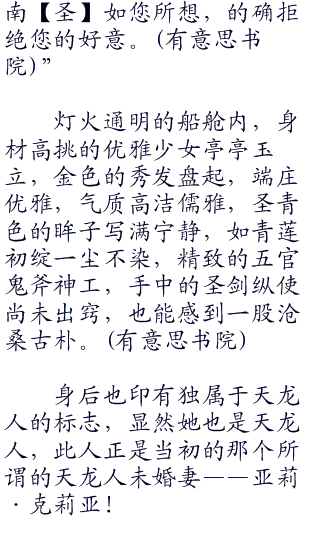 南【圣】如您所想，的确拒
绝您的好意。(有意思书
院)”
灯火通明的船舱内，身
材高挑的优雅少女亭亭玉
立，金色的秀发盘起，端庄
优雅，气质高洁儒雅，圣青
色的眸子写满宁静，如青莲
初绽一尘不染，精致的五官
鬼斧神工，手中的圣剑纵使
尚未出窍，也能感到一股沧
桑古朴。(有意思书院)
身后也印有独属于天龙
人的标志，显然她也是天龙
人，此人正是当初的那个所
谓的天龙人未婚妻——亚莉
·克莉亚！